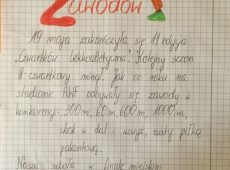 Zawodów
19 maja zakończyła się 11 edycja
"Czwartków Lekkoatletycznych". Kolejny sezon
z czwartkowy minął. Jak co roku na
stadionie AWF odbywały się zawody w
konkurencji: 300 m, 60 m, 600 m, 1000 m,
skok w dal i wzwyż, rzuty piłką
palantową.
Nasza szkoła w finale miejskim